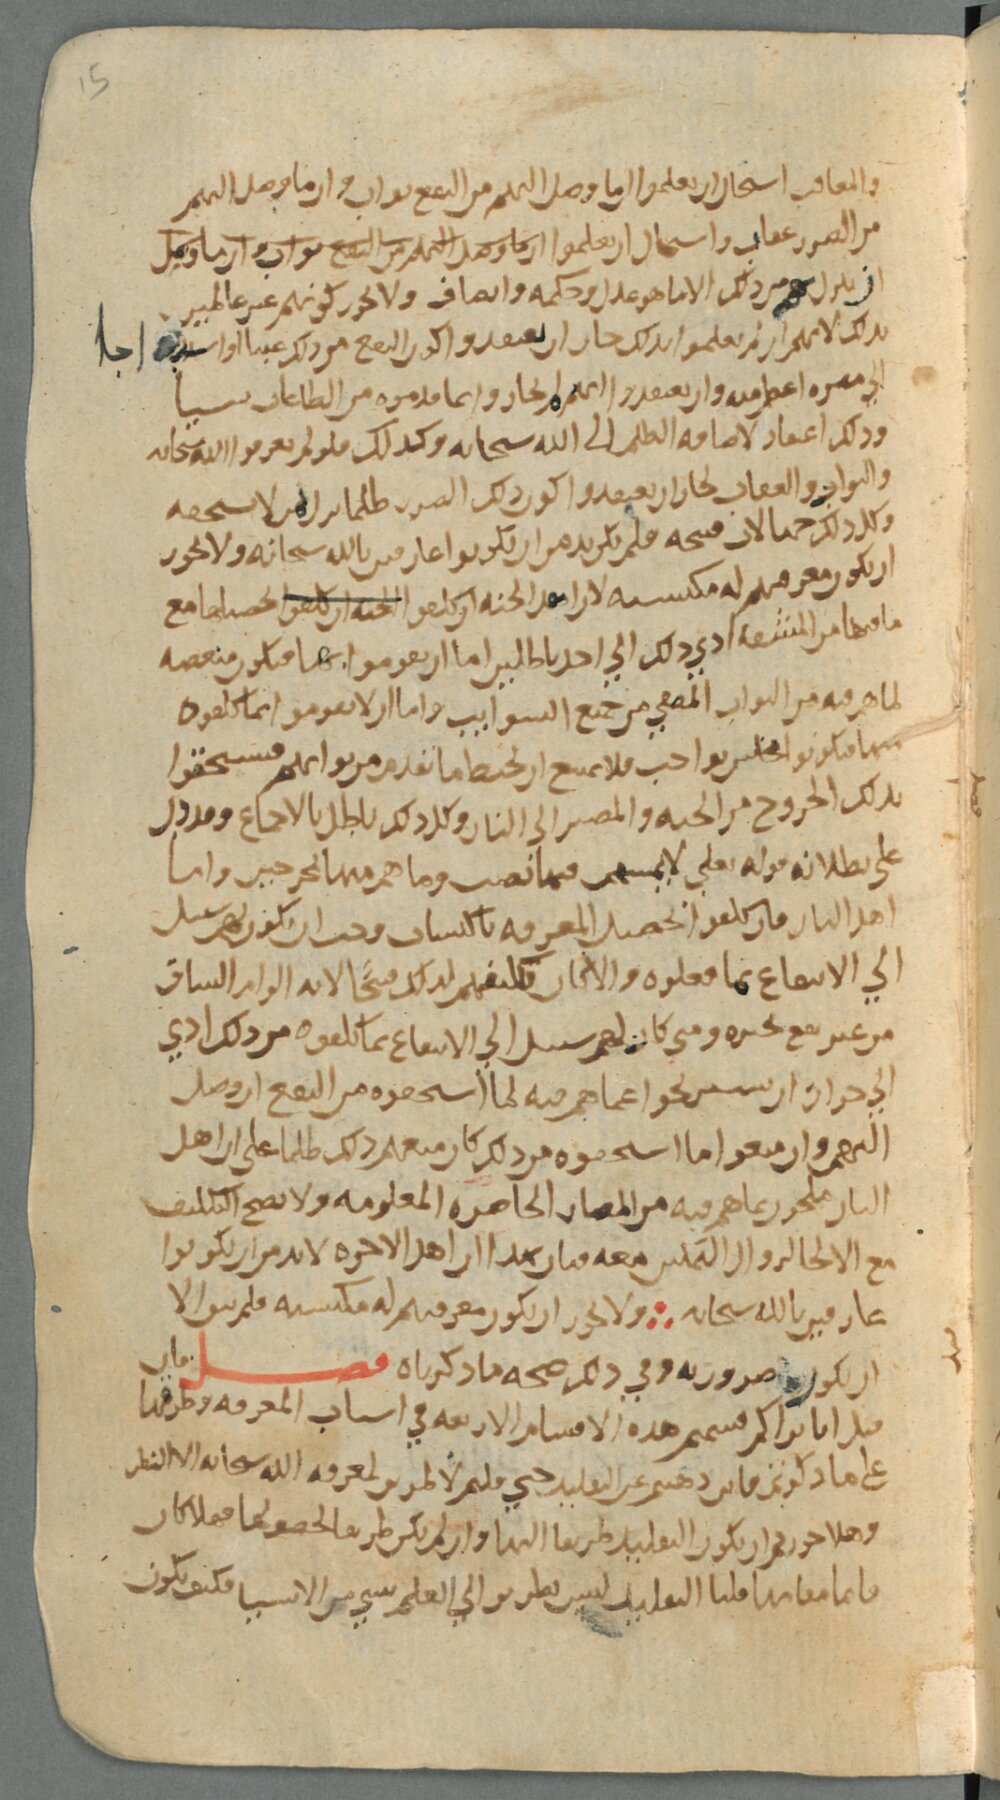 15
والمعاقب استحال ان يعلموا ان ما وصل اليهم من النفع ثواب وان ما وصل اليهم
من الضرر عقاب واستحال ان يعلموا ان ما وصل اليهم من النفع ثواب وان ما وصل
ان نزل بهم من ذلك الا ما هو عدل وحكمة وانصاف ولا يجوز كونهم غير عالمين
بذلك لانهم ان لم يعلموا ذلك جاز ان يعتقدوا كون النفع من ذلك عبثا او
اجلا
الي مضره اعظم منه وان يعتقدوا انهم لم يجازوا بما قدموه من الطاعات شيا
وذلك اعتقاد لاضافة الظلم الى الله سبحانه وكذلك فلو لم يعرفوا الله سبحانه
والثواب والعقاب لجاز ان يعتقدوا كون ذلك الضرر ظلما نزل بمن لا يستحقه
وكل ذلك جهالات قبيحه فلم يكن بد من ان يكونوا عارفين بالله سبحانه ولا يجوز
ان يكون معرفتهم له مكتسبه لان اهل الجنه ان كلفوا الجنه ان كلفوا تحصيلها مع
ما فيها من المشقه ادي ذلك الي احد باطلين اما ان يقوموا بها فتكون منغصه
لما هم فيه من الثواب المصفي من جميع الشوايب واما ان لا يقوموا بما كلفوه
منها فيكونوا مخلين بواجب فلا يمتنع ان يحبط ما تقدم من ثوابهم فيستحقوا
بذلك الخروج من الجنه والمصير الى النار وكل ذلك باطل بالاجماع وقد دل
على بطلانه قوله تعلي لا يمسهم فيها نصب وما هم منها بمخرجين واما
اهل النار فان كلفوا تحصيل المعرفه باكتساب وجب ان يكون لهم سبيل
الي الانتفاع بما فعلوه والا كان تكليفهم لذلك قبيحا لانه الزام الشاق
من غير نفع يجبره ومتى كان لهم سبيل الي الانتفاع بما كلفوه من ذلك ادي
الي جواز ان يستريحوا عما هم فيه لما استحقوه من النفع ان وصل
اليهم وان منعوا ما استحقوه من ذلك كان منعهم ذلك ظلما على ان اهل
النار ملجون بما هم فيه من المضار الحاضره المعلومه ولا يصح التكليف
مع الالجا لزوال التمكين معه فبان بهذا ان اهل الاخره لابد من ان يكونوا
عارفين بالله سبحانه ولا يجوز ان يكون معرفتهم له مكتسبه فلم يبق الا
ان يكون ضروريه وفي ذلك صحه ما ذكرناه فصل فان
قيل انا نراكم قسمتم هذه الاقسام الاربعه في اسباب المعرفه وطرقها
على ما ذكرتم فاين ذهبتم عن التقليد حتي قلتم لا طريق لمعرفه الله سبحانه الا النظر
وهلا جوزتم ان يكون التقليد طريقا اليها وان لم يكن طريقا لحصولها فهلا كان
قايما مقامها قلنا التقليد ليس بطريق الي العلم بشي من الاشيا فكيف يكون